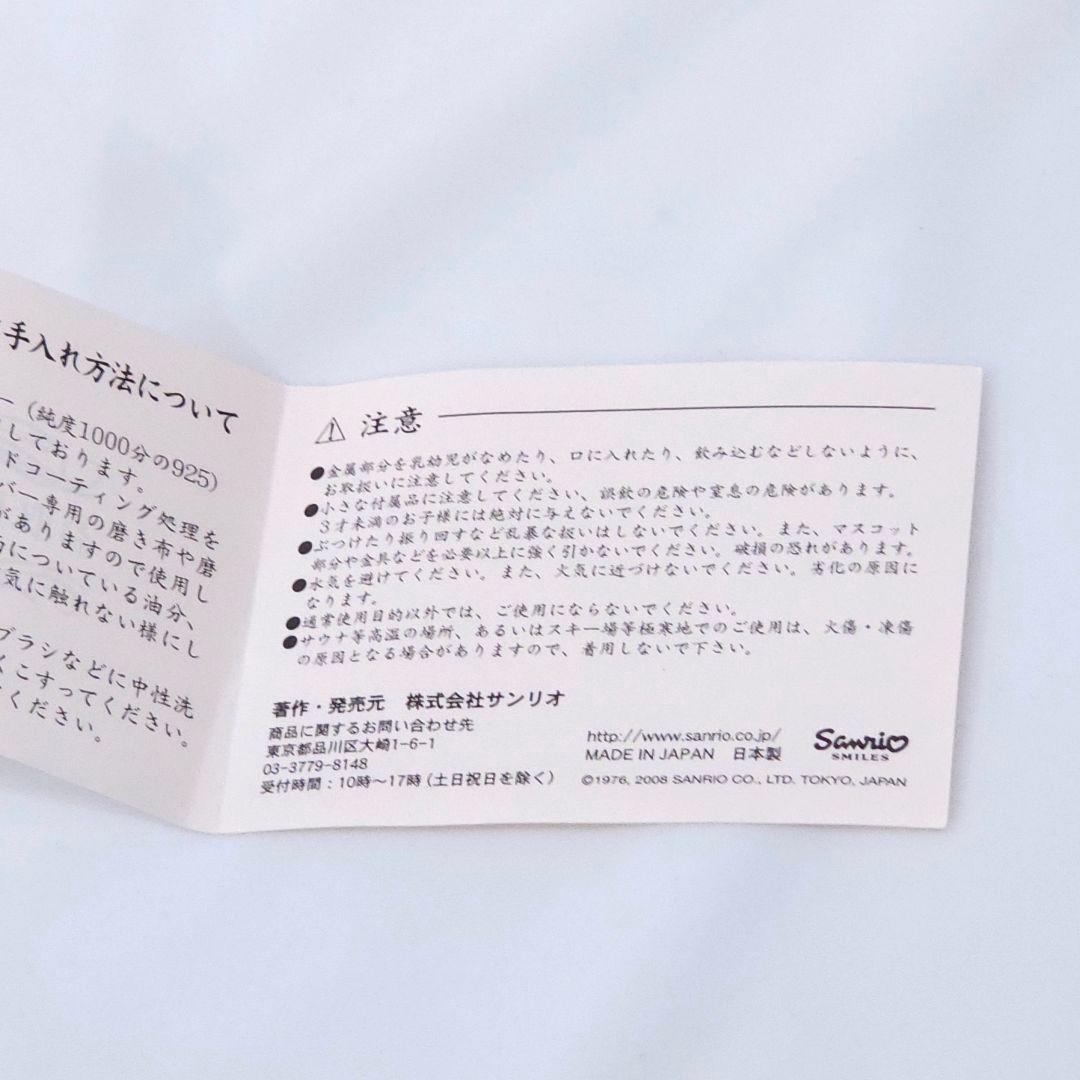 手入れ方法について
ー（純度1000分の925）
しております。
ドコーティング処理を
バー専用の磨き布や磨
がありますので使用し
についている油分、
気に触れない様にし
ブラシなどに中性洗
くこすってください。
ください。
⚠ 注意
●金属部分を乳幼児がなめたり、口に入れたり、飲み込むなどしないように、
お取扱いに注意してください。
●小さな付属品に注意してください、誤飲の危険や窒息の危険があります。
3才未満のお子様には絶対に与えないでください。
●ぶつけたり振り回すなど乱暴な扱いはしないでください。また、マスコット
部分や金具などを必要以上に強く引かないでください。破損の恐れがあります。
●水気を避けてください。また、火気に近づけないでください。劣化の原因に
なります。
●通常使用目的以外では、ご使用にならないでください。
●サウナ等高温の場所、あるいはスキー場等極寒地でのご使用は、火傷・凍傷
の原因となる場合がありますので、着用しないで下さい。
著作・発売元 株式会社サンリオ
商品に関するお問い合わせ先
東京都品川区大崎1-6-1
03-3779-8148
受付時間：10時〜17時（土日祝日を除く）
http://www.sanrio.co.jp/
MADE IN JAPAN 日本製
Sanrio
SMILES
©1976, 2008 SANRIO CO., LTD. TOKYO, JAPAN